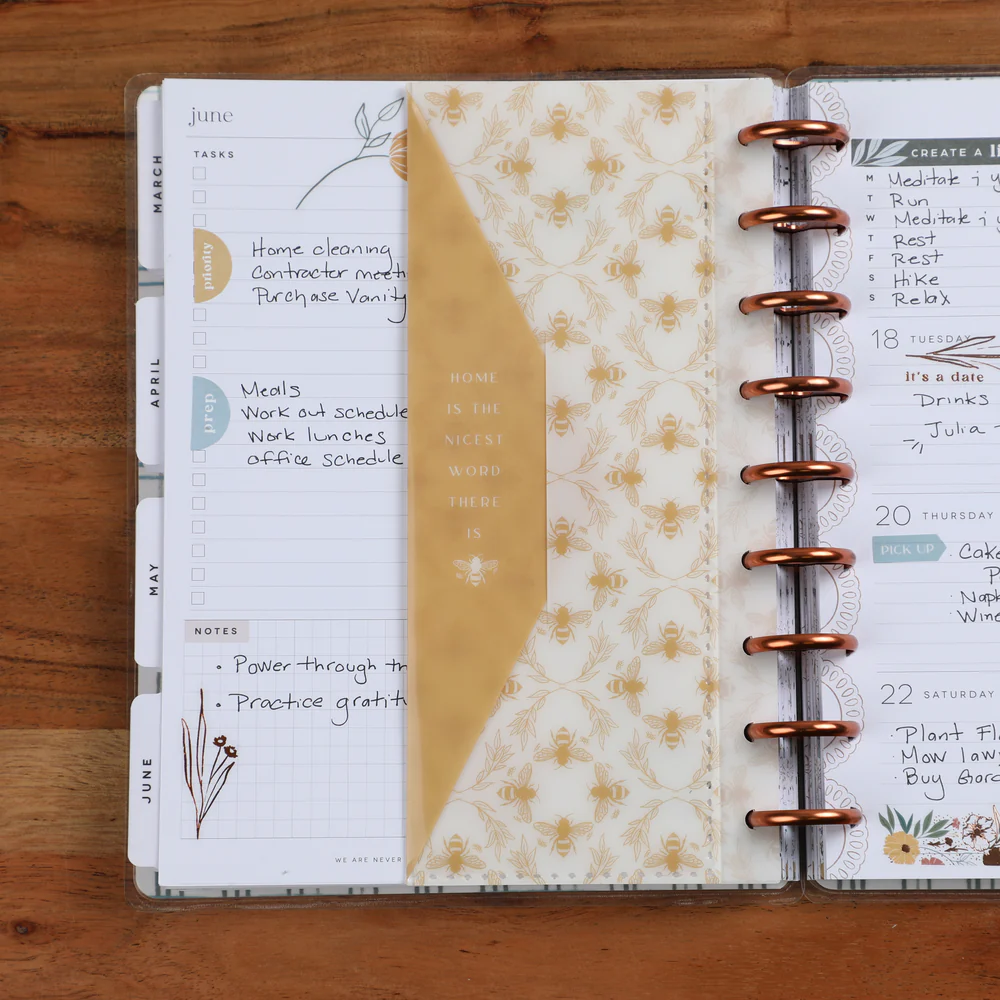 MARCH
APRIL
MAY
JUNE
june
TASKS
priority
Home cleaning
Contractor
Purchase Vanity
prep
Meals
Work out schedule
Work lunches
office schedule
NOTES
• Power through
• Practice
WE ARE NEVER
HOME
IS THE
NICEST
WORD
THERE
IS
CREATE A
M Meditate
T Run
W Meditate
T Rest
F Rest
S Hike
S Relax
18 TUESDAY
it's a date
Drinks
Julia -
20 THURSDAY
PICK UP
· Cake
· Wine
22 SATURDAY
· Plant
· Mow
· Buy